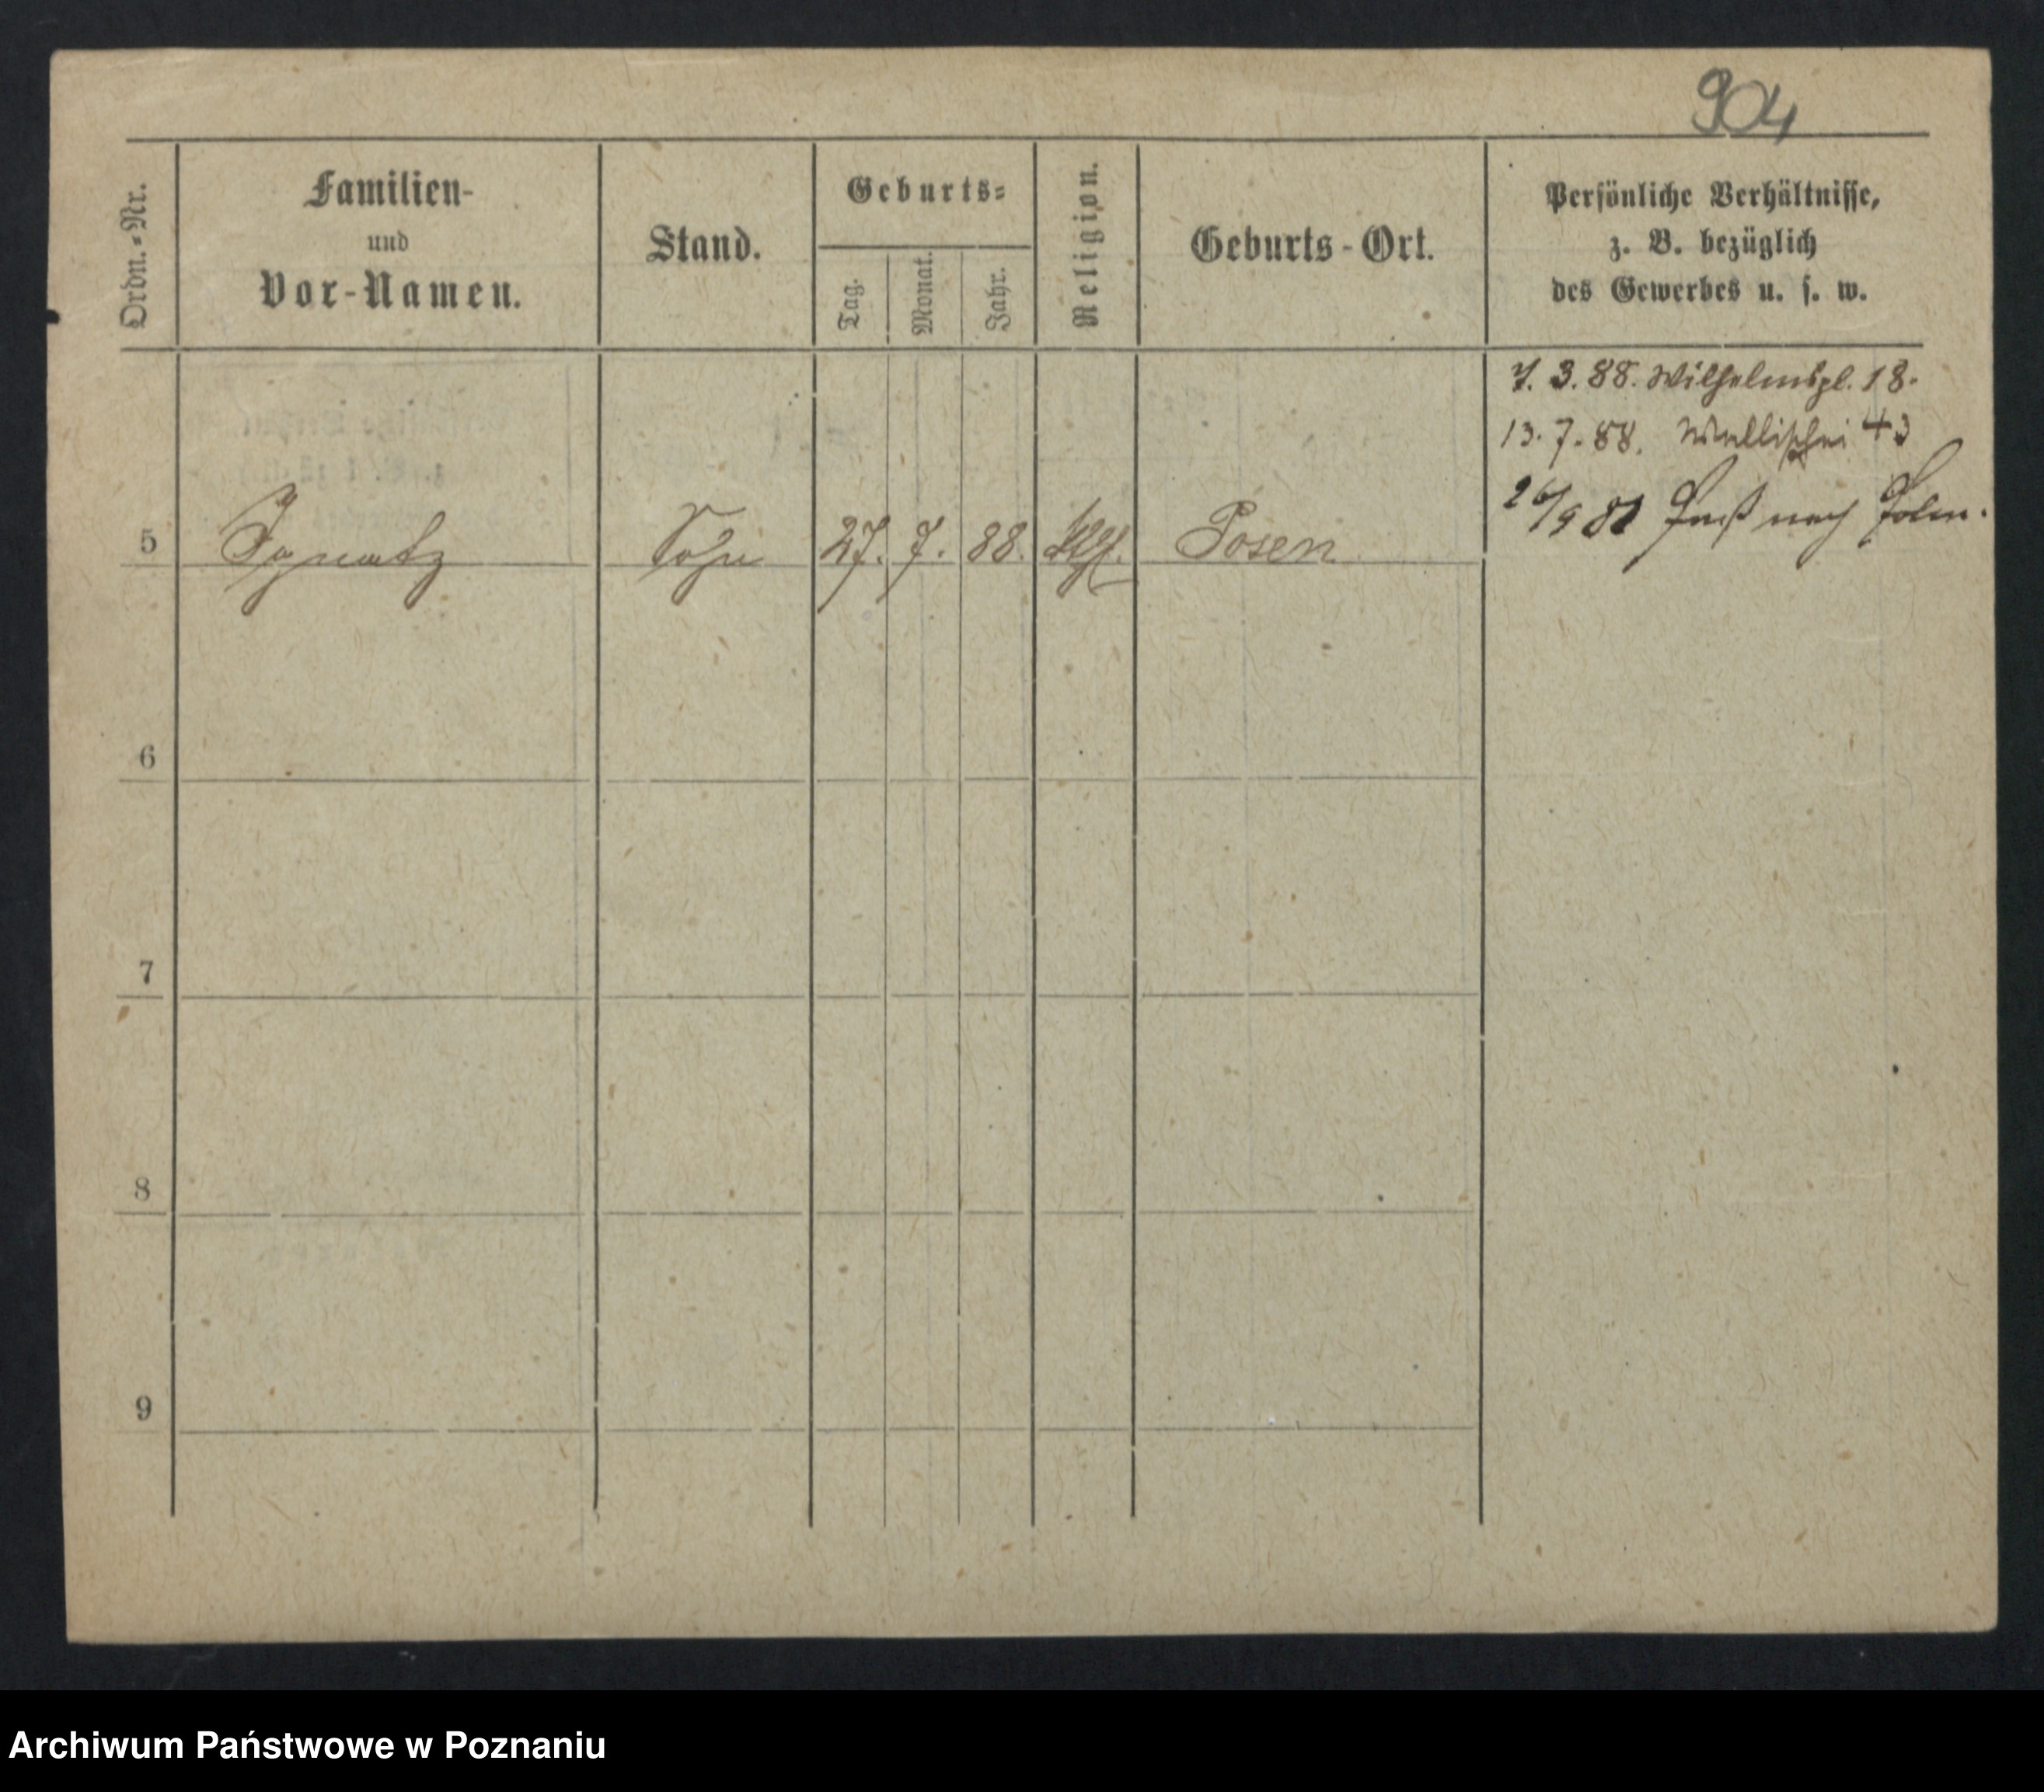 904
Ordn.-Nr.
Familien-
und
Vor-Namen.
Stand.
Geburts-
Tag.
Monat.
Jahr.
Religion.
Geburts-Ort.
Persönliche Verhältnisse,
z. B. bezüglich
des Gewerbes u. s. w.
7. 3. 88. Wilhelmspl. 18.
13. 7. 88. Wallischei 43
Paß nach Polen.
5 Ignatz Sohn 27. 7. 88. Posen
6
7
8
9
Archiwum Państwowe w Poznaniu